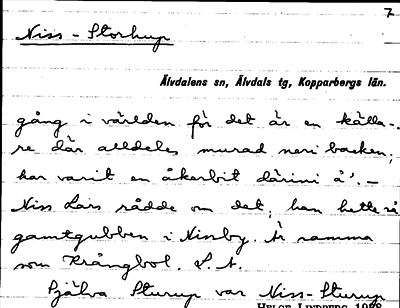 7
Niss - Storhup
Älvdalens sn, Älvdals tg, Kopparbergs län.
gång i världen för det är en källa-
re där alldeles murad neri backen;
har varit en åkerbit därini å'. -
Niss Lars rådde om det; han hette så
gamtgubben i Nissby. Är samma
som Krångbol. S. A.
Själva Sturup var Niss-Sturup
HELGE LINDBERG 1988